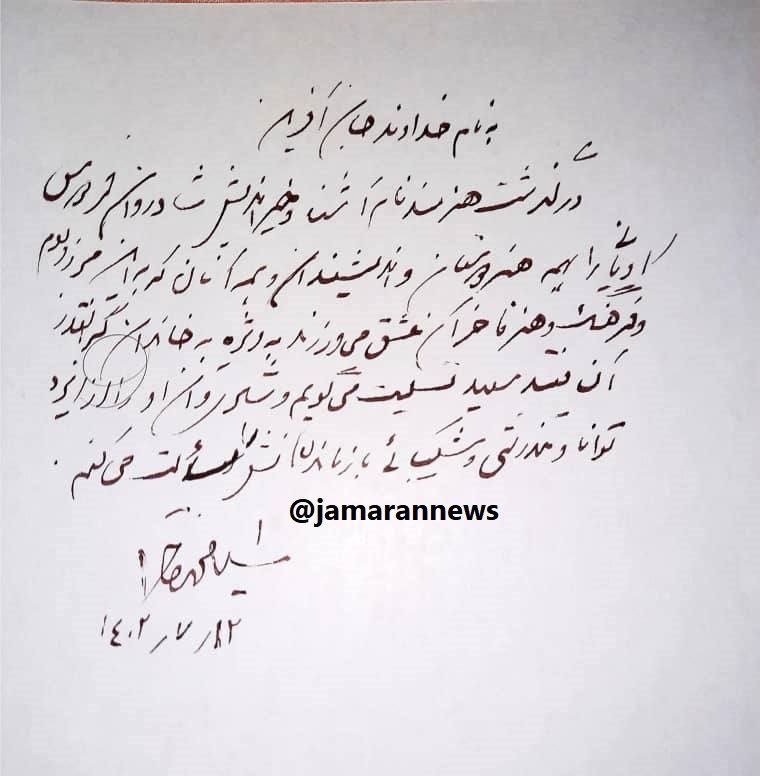 به نام خداوند جان آفرین
درگذشت هنرمند نام آشنا و خیراندیش شادروان فردوس
کاویانی را بهمه هنرورزان و اندیشمندان و همه آنان که به این مرز و بوم
و فرهنگ و هنر فاخر آن عشق می ورزند به ویژه به خاندان گرانقدر
آن فقید سعید تسلیت می گویم و شادی روان او را از ایزد
توانا و تندرستی و شکیبائی بازماندگانش را مسألت می کنم.
@jamarannews
سید محمد خاتمی
۱۴۰۲/۷/۱۲